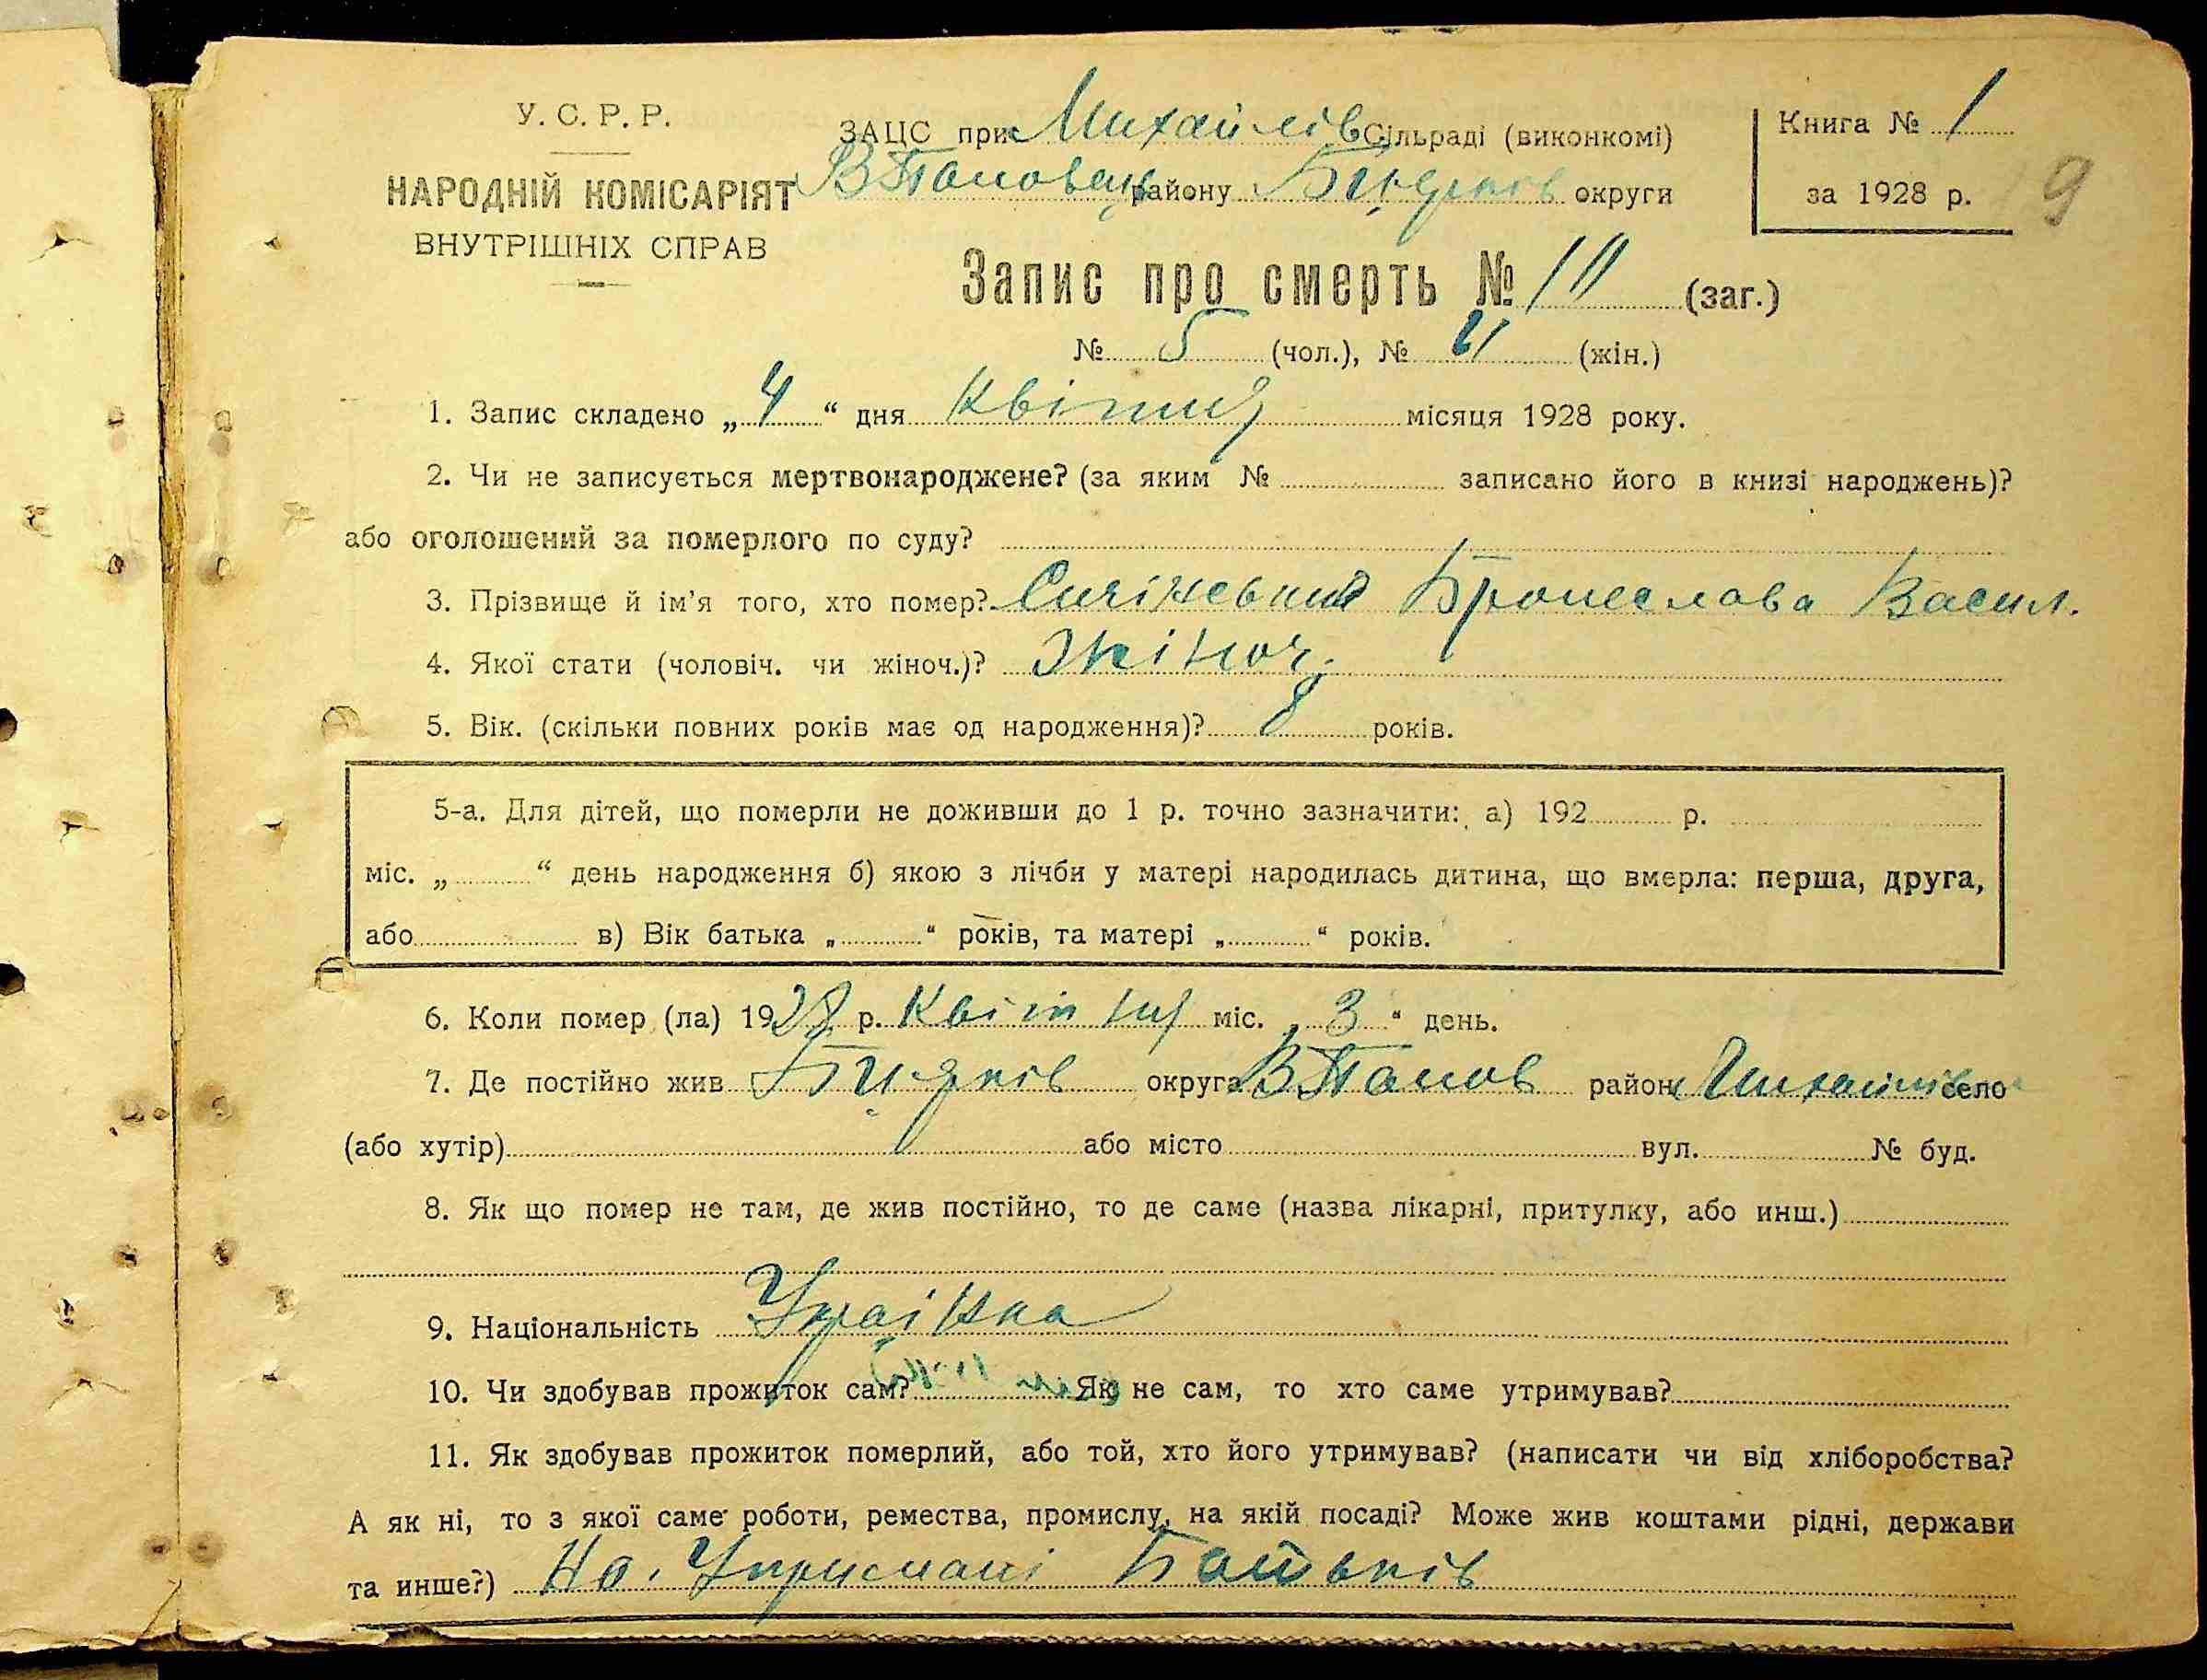 У. С. Р. Р.
НАРОДНІЙ КОМІСАРІЯТ
ВНУТРІШНІХ СПРАВ
ЗАЦС при Михайлів Сільраді (виконкомі)
району округи
Книга № 1
за 1928 р.
9
Запис про смерть № (заг.)
№ 5 (чол.), № (жін.)
1. Запис складено „ 4 “ дня Квітня місяця 1928 року.
2. Чи не записується мертвонароджене? (за яким № записано його в книзі народжень)?
або оголошений за померлого по суду?
3. Прізвище й ім'я того, хто помер? Бронеслава Васил.
4. Якої стати (чоловіч. чи жіноч.)? Жіноч.
5. Вік. (скільки повних років має од народження)? 8 років.
5-а. Для дітей, що померли не доживши до 1 р. точно зазначити: а) 192 р.
міс. „ “ день народження б) якою з лічби у матері народилась дитина, що вмерла: перша, друга,
або в) Вік батька „ “ років, та матері „ “ років.
6. Коли помер (ла) 1928 р. Квітня міс. „ 3 “ день.
7. Де постійно жив округа район Михайлів село
(або хутір) або місто вул. № буд.
8. Як що помер не там, де жив постійно, то де саме (назва лікарні, притулку, або инш.)
9. Національність Украінка
10. Чи здобував прожиток сам? Як не сам, то хто саме утримував?
11. Як здобував прожиток померлий, або той, хто його утримував? (написати чи від хліборобства?
А як ні, то з якої саме роботи, ремества, промислу, на якій посаді? Може жив коштами рідні, держави
та инше?) На Утримані Батьків